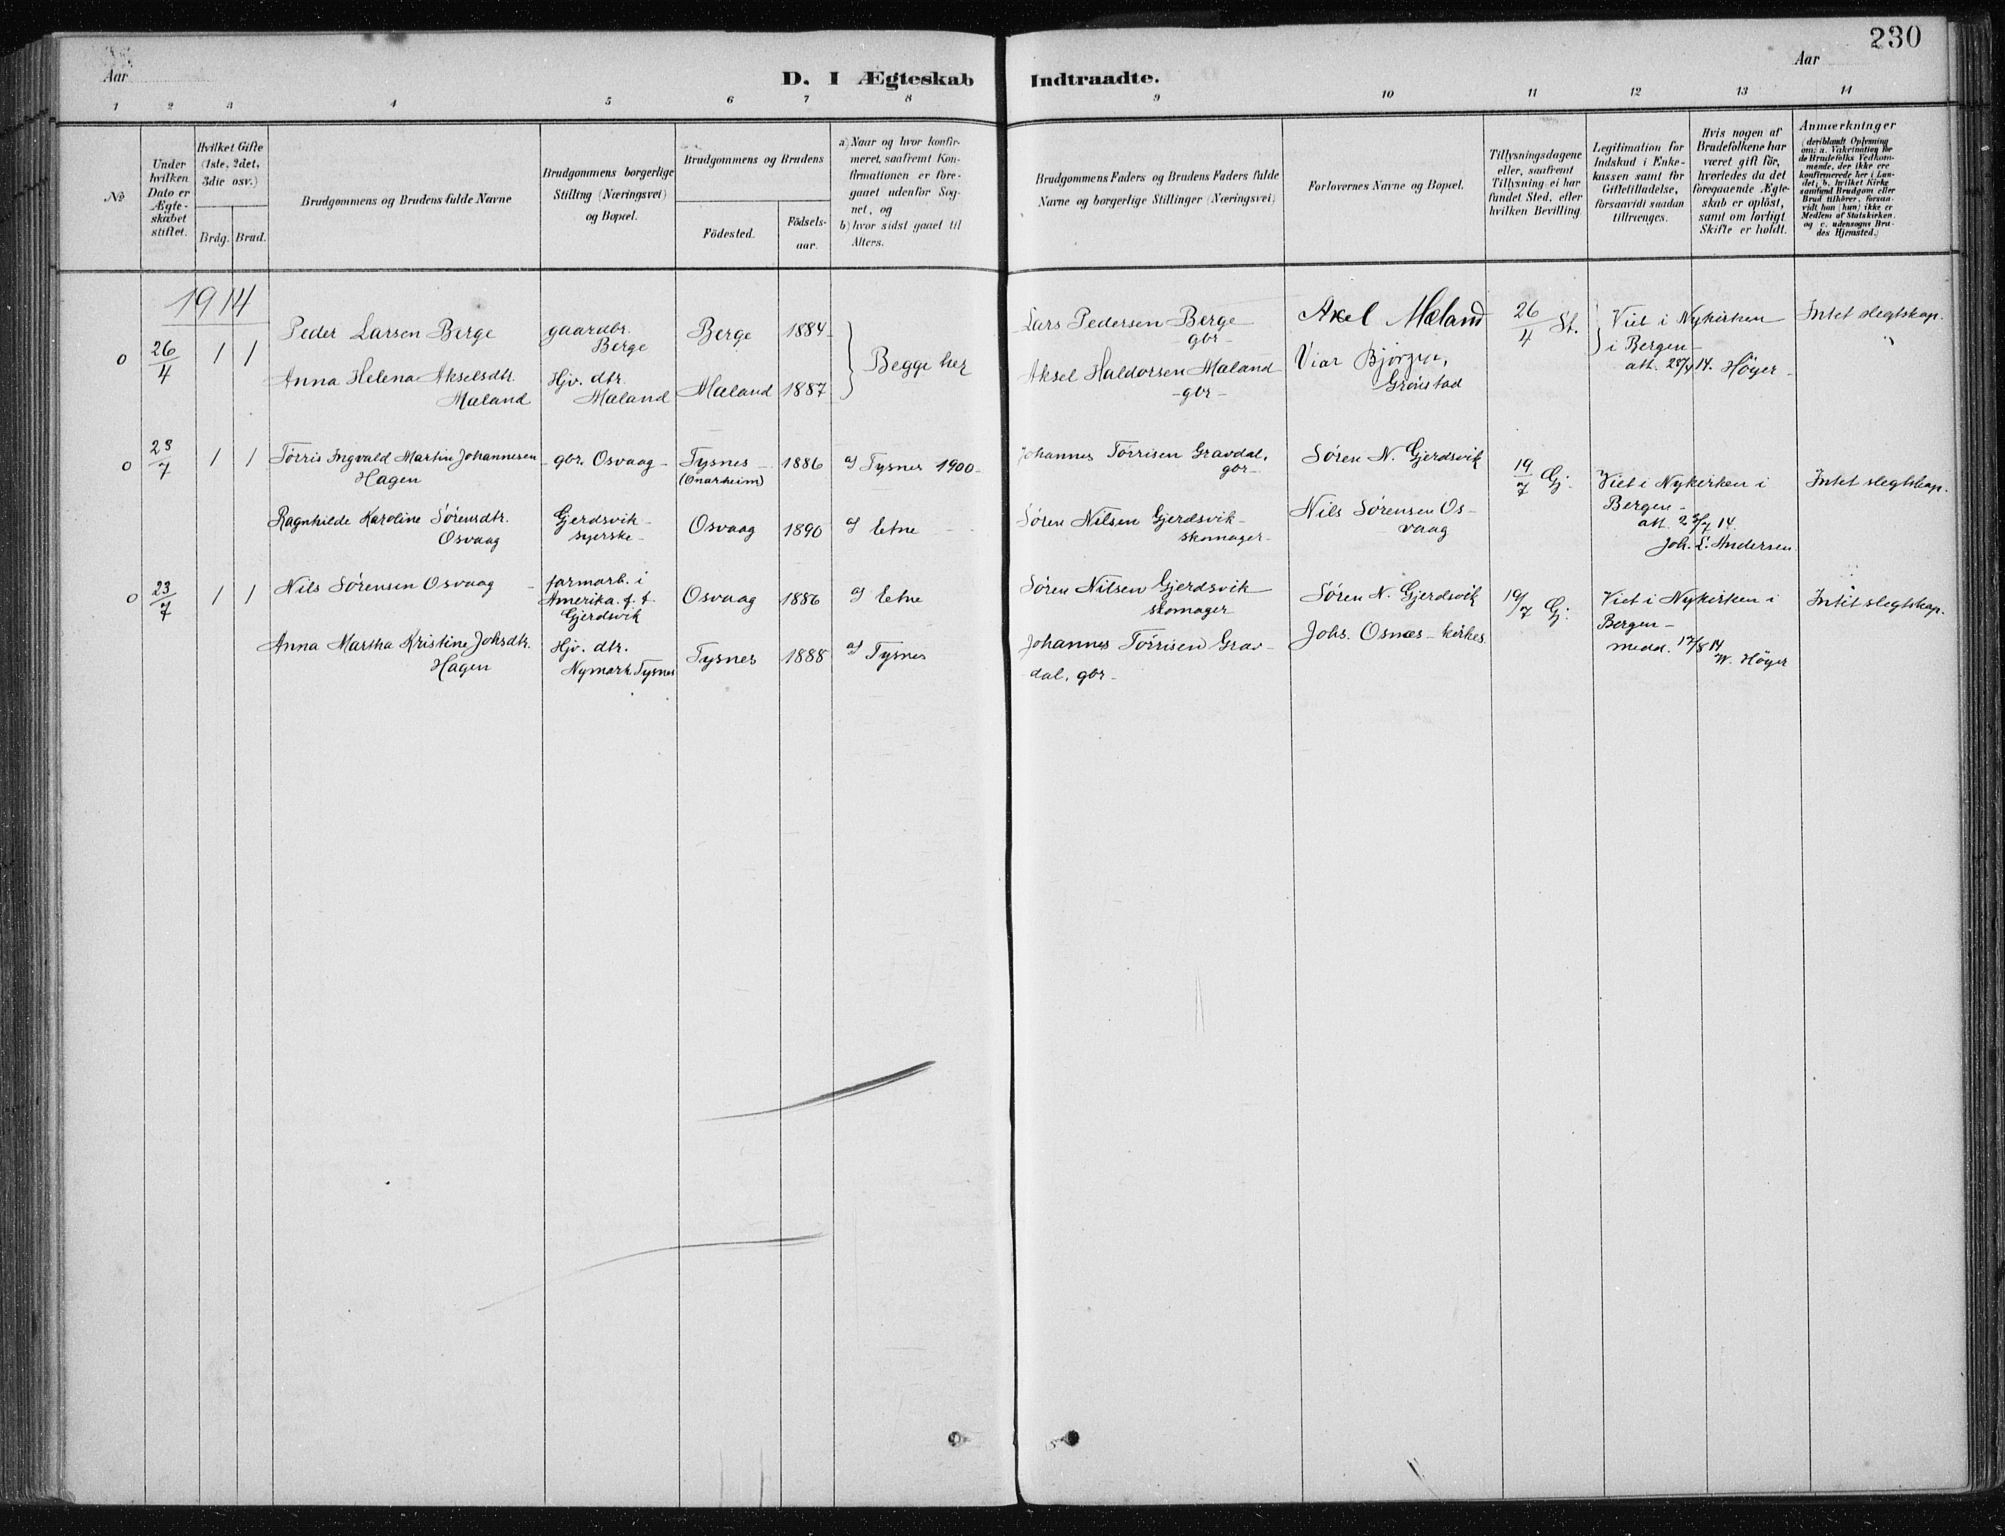 230
Aar
D. I Ægteskab Indtraadte.
Aar
1 2 3 4 5 6 7 8 9 10 11 12 13 14
No
Under hvilken Dato er Ægteskabet stiftet.
Hvilket Gifte (1ste, 2det, 3die osv.)
Brdg. Brud.
Brudgommens og Brudens fulde Navne
Brudgommens borgerlige Stilling (Næringsvei) og Bopæl.
Brudgommens og Brudens
Födested.
Födsels-aar.
a) Naar og hvor konfirmeret, saafremt Konfirmationen er foregaaet udenför Sognet, og
b) hvor sidst gaaet til Alters.
Brudgommens Faders og Brudens Faders fulde Navne og borgerlige Stillinger (Næringsvei)
Forlovernes Navne og Bopæl.
Tillysningsdagene eller, saafremt Tillysning ei har fundet Sted, efter hvilken Bevilling
Legitimation for Indskud i Enkekassen samt för Giftetilladelse, forsaavidt saadan tiltrænges.
Hvis nogen af Brudefolkene har været gift för, hvorledes da det foregaaende Ægteskab er oplöst, samt om lovligt Skifte er holdt.
Anmærkninger
(deriblandt Oplysning om: a. Vakcination for de Brudefolks Vedkommende, der ikke ere konfirmerede her i Landet; b. hvilket Kirkesamfund Brudgom eller Brud tilhörer, forsaavidt han (hun) ikke er Medlem af Statskirken. og c. udensogns Brudes Hjemsted.)
1914
o 26/4 1 1 Peder Larsen Berge gaardbr. Berge Berge 1884 Begge her Lars Pedersen Berge gbr Axel Mæland 26/4 St. Viet i Nykirken i Bergen att. 28/4 14. Höyer Intet slegtskap.
Anna Helena Akselsdtr. Mæland Hjv. dtr. Mæland Mæland 1887 Aksel Haldorsen Mæland gbr Grönstad
o 23/7 1 1 Törris Ingvald Martin Johannesen Hagen gbr. Osvaag Tysnes (Onarheim) 1886 a) Tysnes 1900 Johannes Törrisen Gravdal, gbr Sören N. Gjerdsvik 19/7 Gj. Viet i Nykirken i Bergen att. 23/7 14. Joh. L. Andersen Intet slegtskap.
Ragnhilde Karoline Sörensdtr. Osvaag Gjerdsvik syerske Osvaag 1890 a) Etne Sören Nilsen Gjerdsvik skomager Nils Sörensen Osvaag
o 23/7 1 1 Nils Sörensen Osvaag farmarb. i Amerika. f. t. Gjerdsvik Osvaag 1886 a) Etne Sören Nilsen Gjerdsvik skomager Sören N. Gjerdsvik 19/7 Gj. Viet i Nykirken i Bergen medd. 17/8 14 W. Höyer Intet slegtskap.
Anna Martha Kristine Johsdtr. Hagen Hjv. dtr. Nymark Tysnes Tysnes 1888 a) Tysnes Johannes Törrisen Gravdal, gbr Johs. Osnæs kirkes.